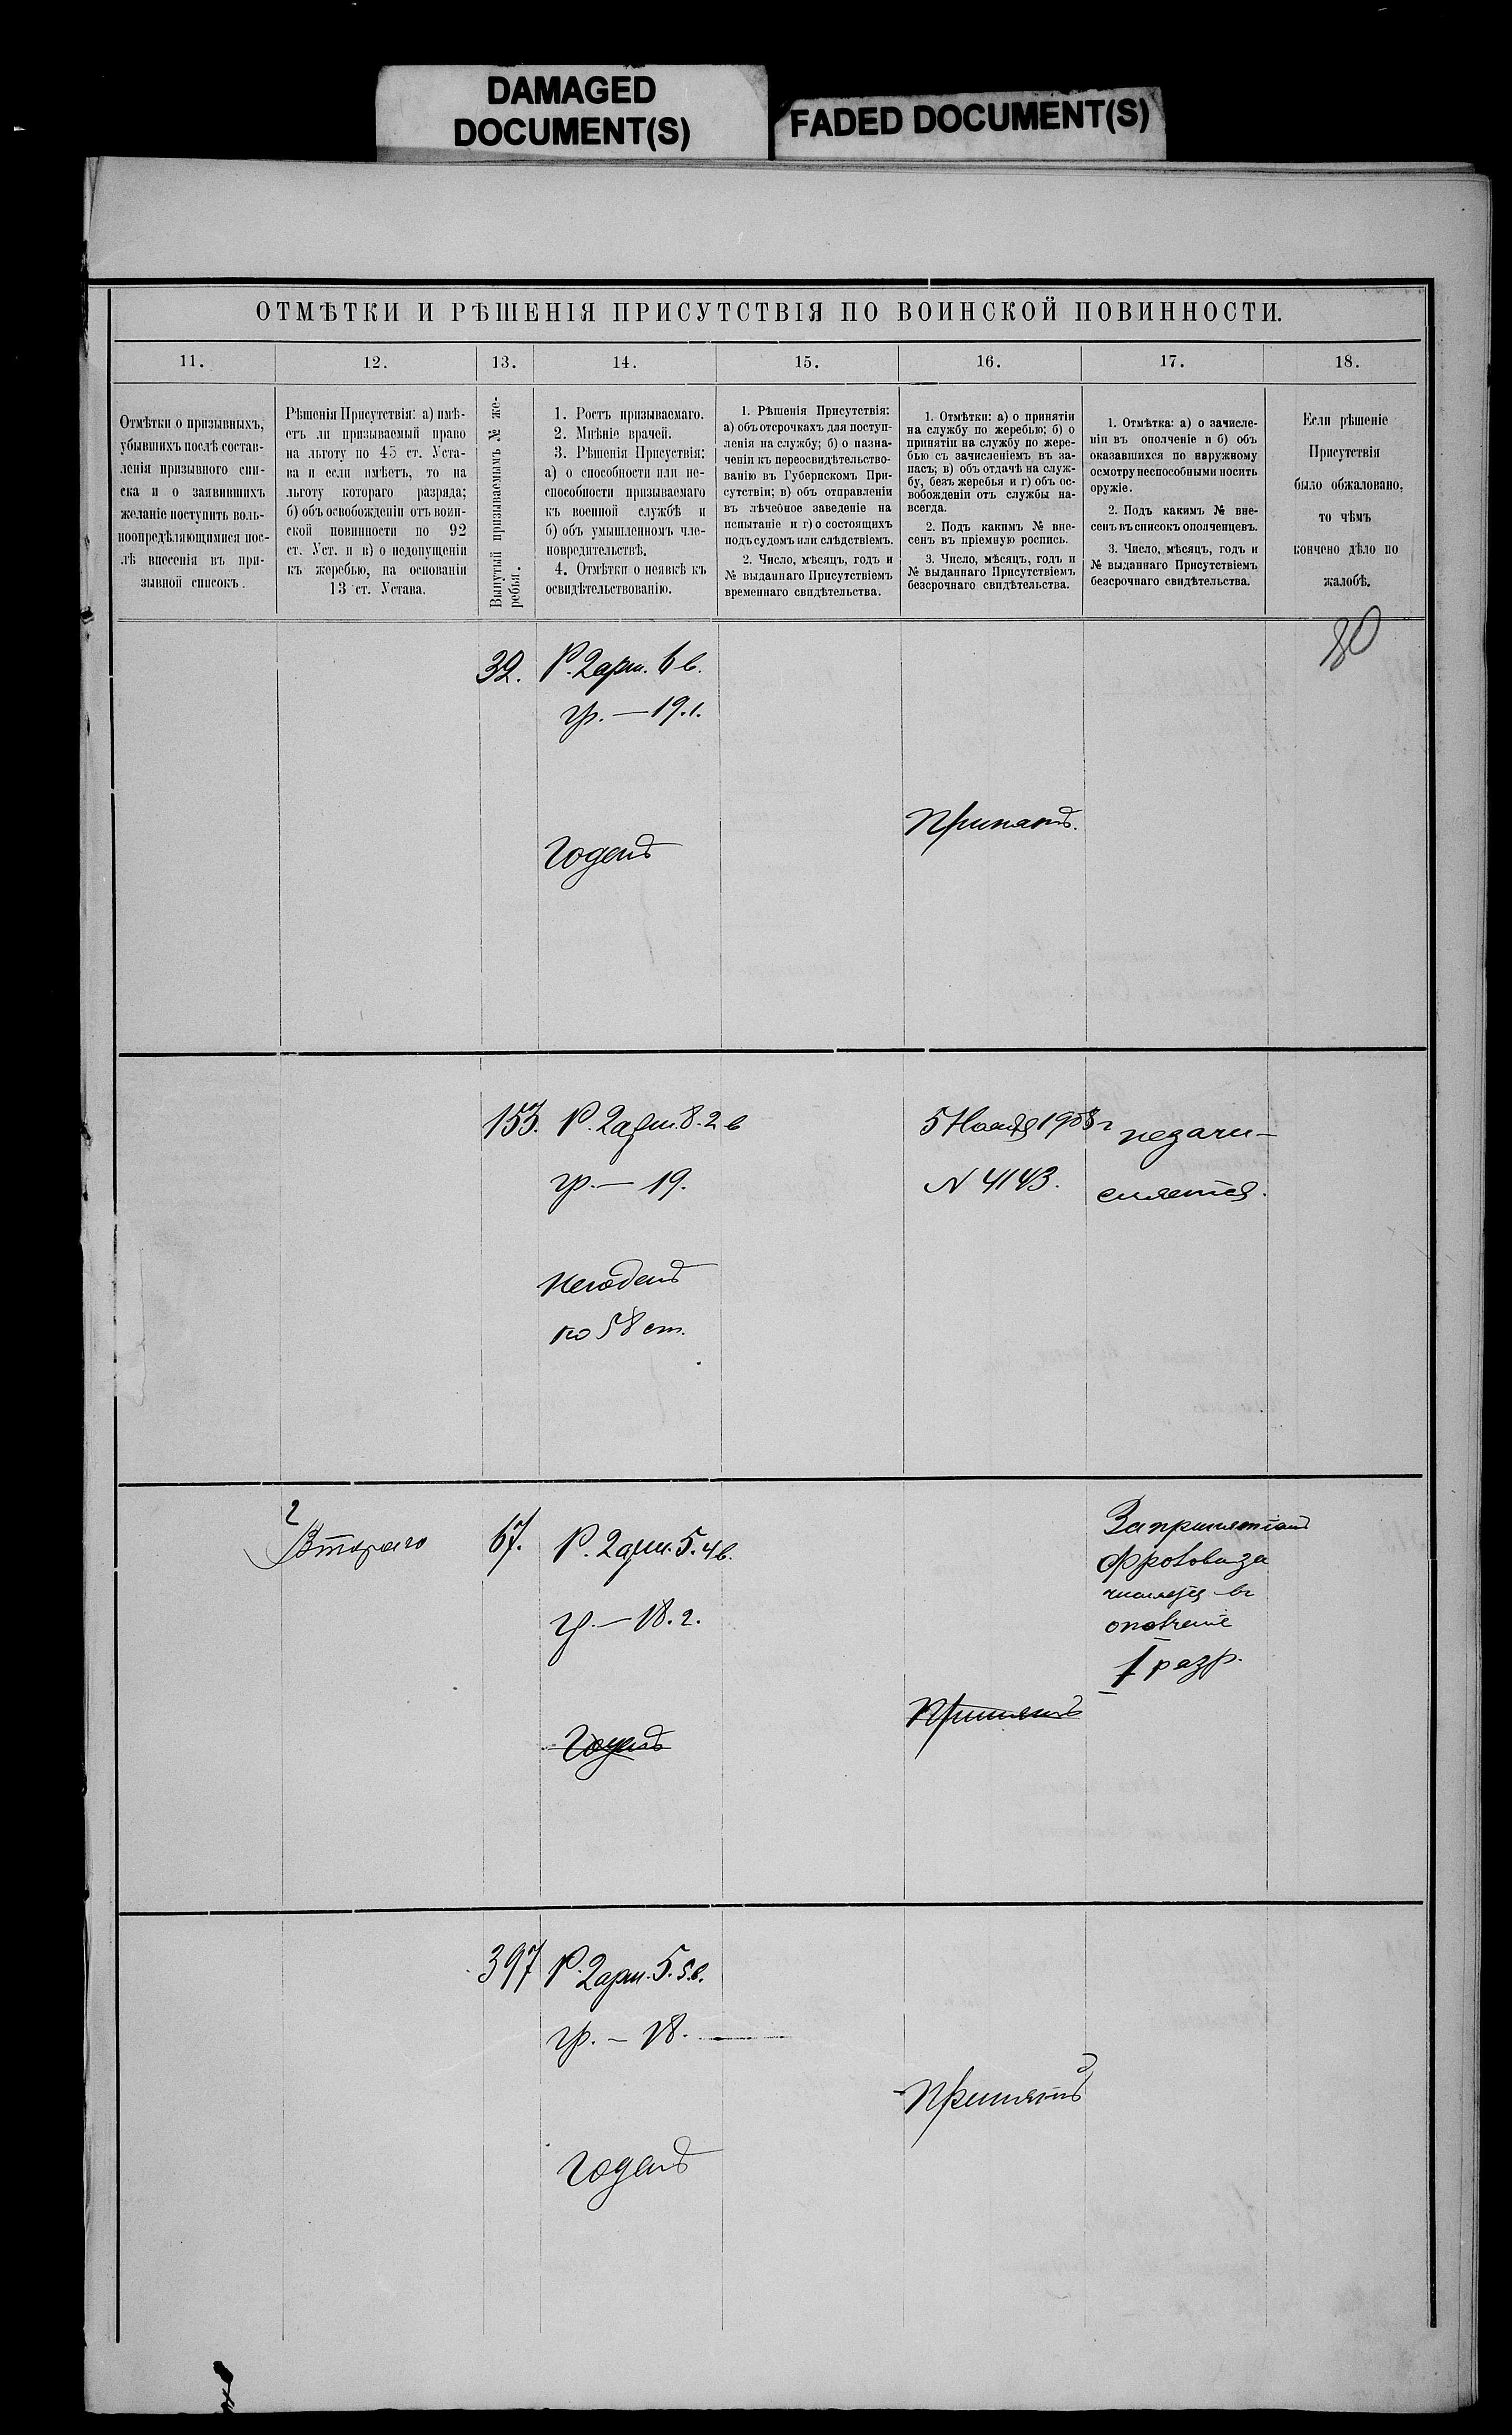 DAMAGED
DOCUMENT(S)
FADED DOCUMENT(S)
ОТМѢТКИ И РѢШЕНІЯ ПРИСУТСТВІЯ ПО ВОИНСКОЙ ПОВИННОСТИ.
11.
12.
13.
14.
15.
16.
17.
18.
Отмѣтки о призывныхъ,
убывшихъ послѣ состав-
ленія призывного спи-
ска и о заявившихъ
желаніе поступить воль-
ноопредѣляющимися пос-
лѣ внесенія въ при-
зывной списокъ.
Рѣшенія Присутствія: а) имѣ-
етъ ли призываемый право
на льготу по 45 ст. Уста-
ва и если имѣетъ, то на
льготу котораго разряда;
б) объ освобожденіи отъ воин-
ской повинности по 92
ст. Уст. и в) о недопущеніи
къ жеребью, на основаніи
13 ст. Устава.
Вынутый призываемымъ № же-
ребья.
1. Ростъ призываемаго.
2. Мнѣніе врачей.
3. Рѣшенія Присуствія:
а) о способности или не-
способности призываемаго
къ военной службѣ и
б) объ умышленномъ чле-
новредительствѣ.
4. Отмѣтки о неявкѣ къ
освидѣтельствованію.
1. Рѣшенія Присутствія:
а) объ отсрочкахъ для поступ-
ленія на службу; б) о назна-
ченіи къ переосвидѣтельство-
ванію въ Губернскомъ При-
сутствіи; в) объ отправленіи
въ лѣчебное заведеніе на
испытаніе и г) о состоящихъ
подъ судомъ или слѣдствіемъ.
2. Число, мѣсяцъ, годъ и
№ выданнаго Присутствіемъ
временнаго свидѣтельства.
1. Отмѣтки: а) о принятіи
на службу по жеребью; б) о
принятіи на службу по жере-
бью съ зачисленіемъ въ за-
пасъ; в) объ отдачѣ на служ-
бу, безъ жеребья и г) объ ос-
вобожденіи отъ службы на-
всегда.
2. Подъ какимъ № вне-
сенъ въ пріемную роспись.
3. Число, мѣсяцъ, годъ и
№ выданнаго Присутствіемъ
безсрочнаго свидѣтельства.
1. Отмѣтка: а) о зачисле-
ніи въ ополченіе и б) объ
оказавшихся по наружному
осмотру неспособными носить
оружіе.
2. Подъ какимъ № вне-
сенъ въ списокъ ополченцевъ.
3. Число, мѣсяцъ, годъ и
№ выданнаго Присутствіемъ
безсрочнаго свидѣтельства.
Если рѣшеніе
Присутствія
было обжаловано,
то чѣмъ
кончено дѣло по
жалобѣ.
32.
Р. 2 арш. 6 в.
гр. — 19.1.
Годенъ
Принятъ.
153.
Р. 2 арш. 8.2 в
гр. — 19.
Негоденъ
по 58 ст.
5 Ноября 1908 г
N 4143.
незачи-
сляется.
2
Второго
67.
Р. 2 арш. 5.4 в.
гр. — 18.2.
Годенъ
Принятъ
числится въ
ополченіе
I разр.
397
Р. 2 арш. 5.5 в.
гр. — 18.
Годенъ
Принятъ